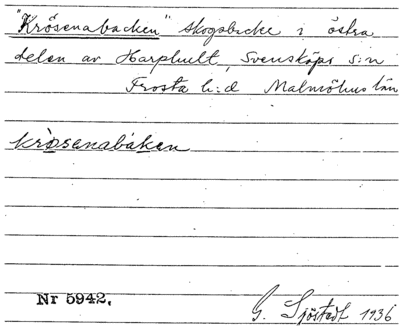 "Krösenabacken" skogsbacke i östra
delen av Harphult, Svensköps s:n
Frosta h:d Malmöhus län
krösenabaken
Nr 5942.
G. Sjöstedt 1936